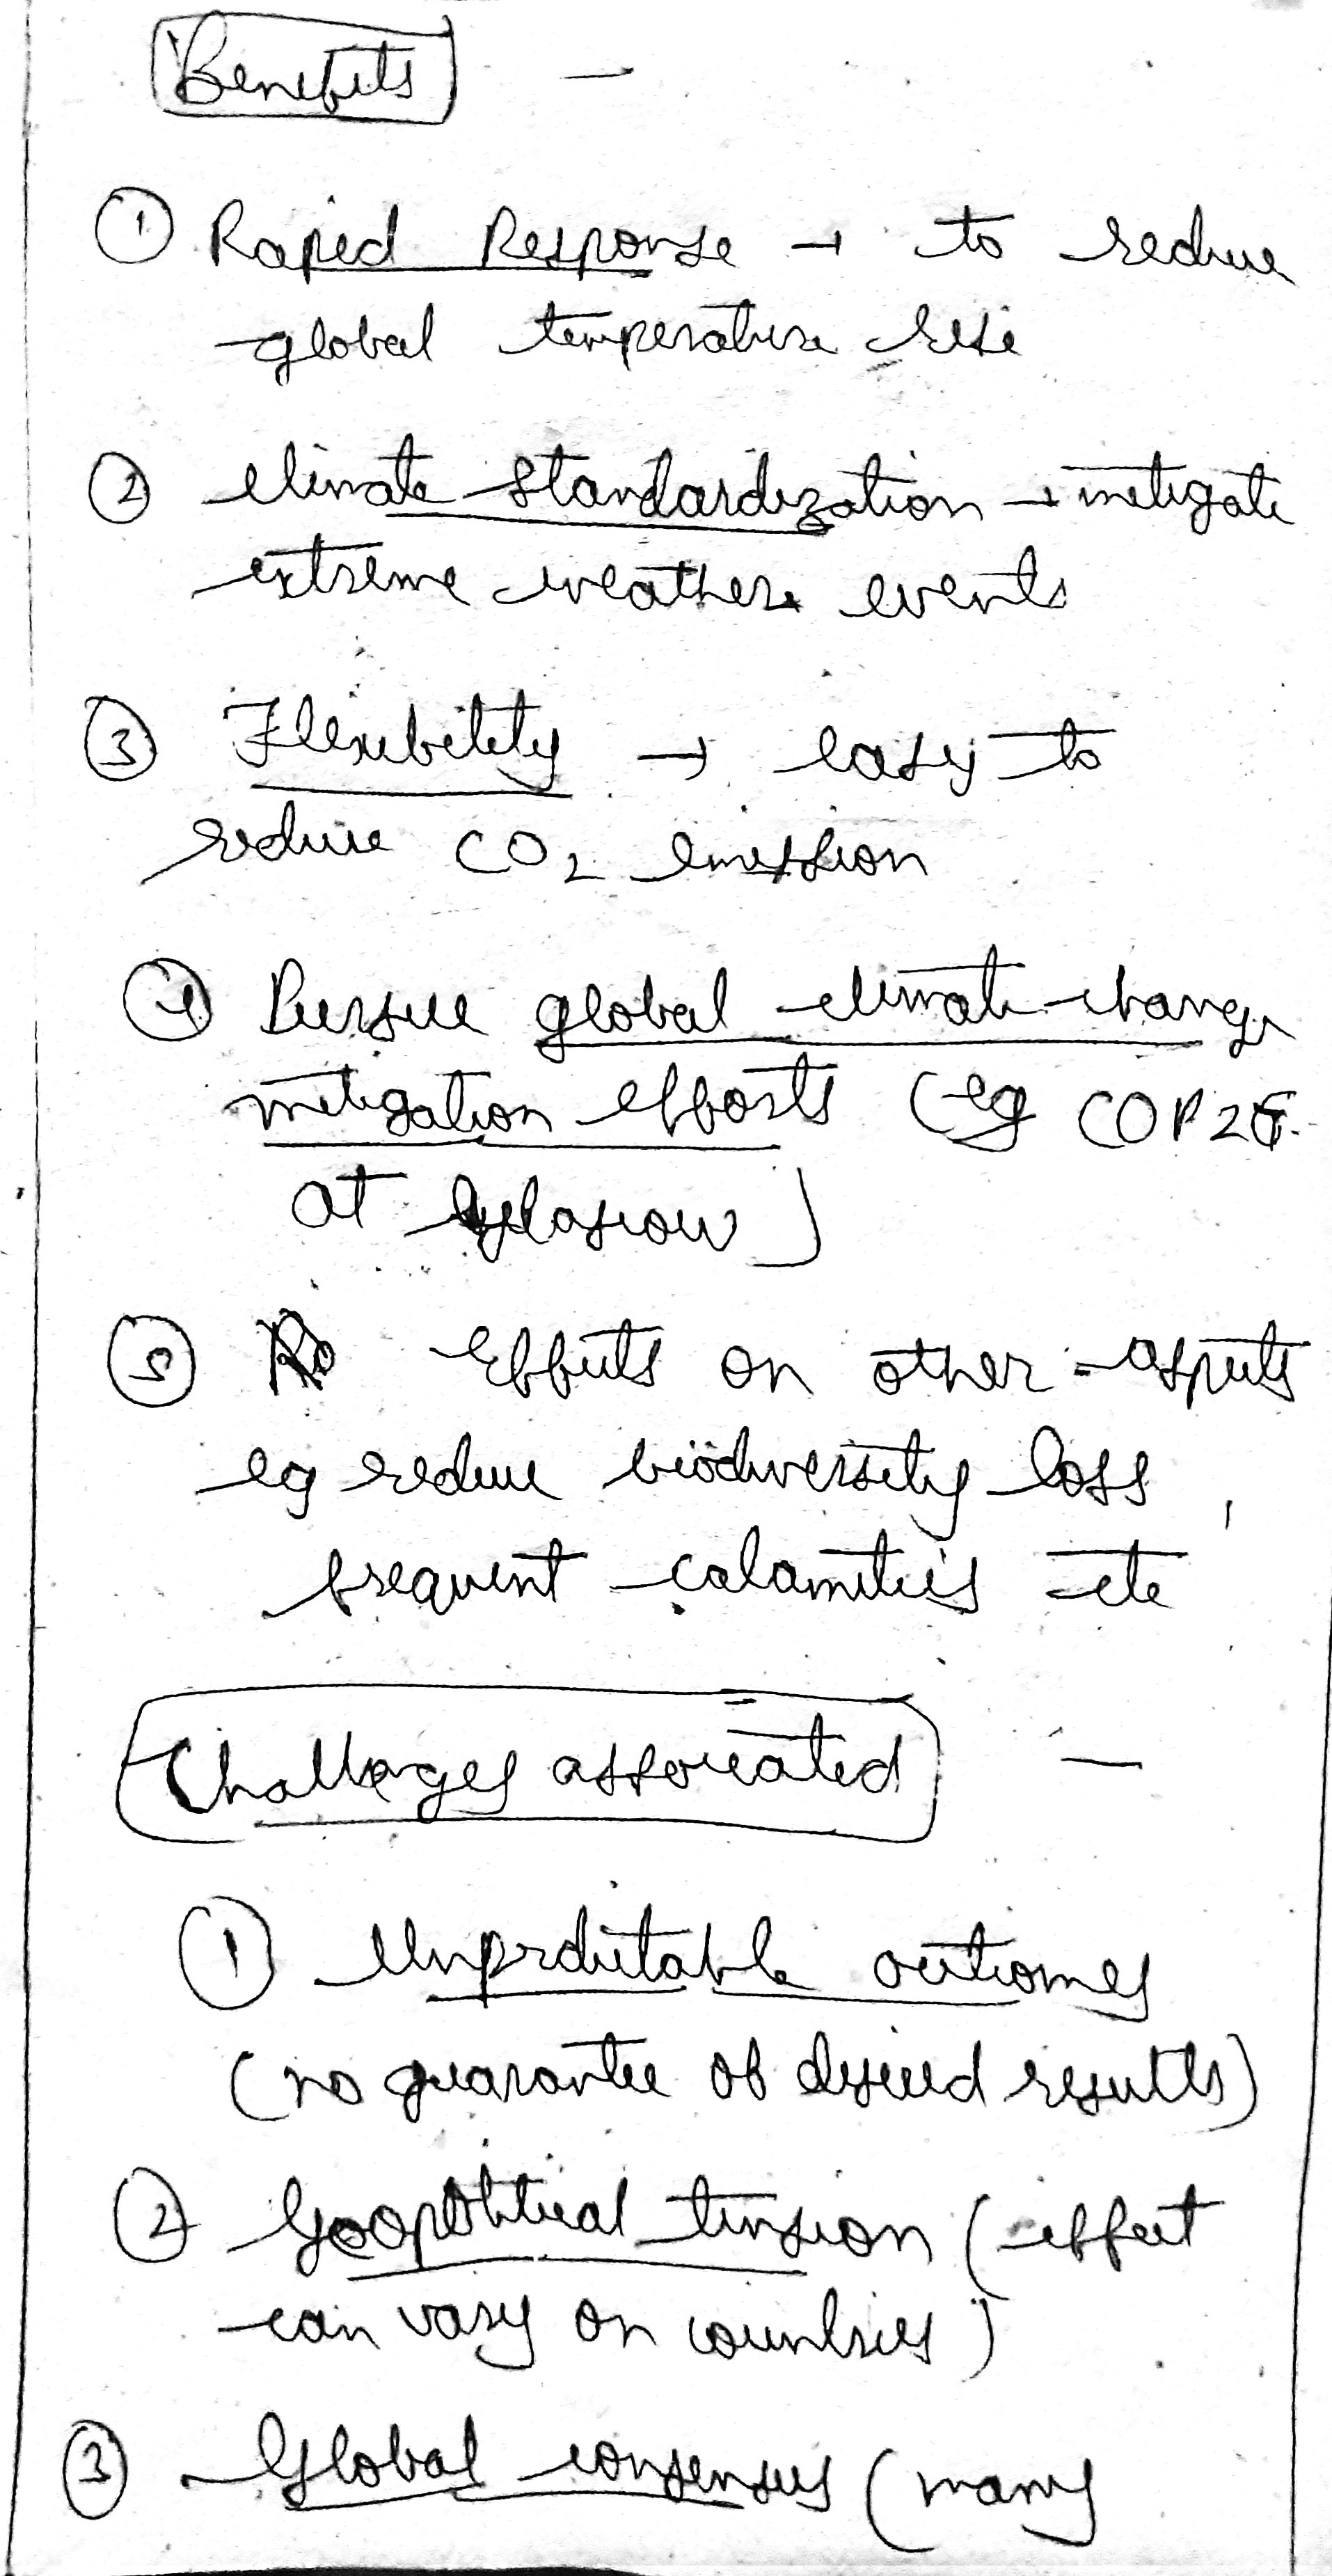 Benefits —
① Rapid Response → to reduce
global temperature rise
② climate standardization → mitigate
extreme weather events
③ Flexibility → easy to
reduce CO2 emission
④ Pursue global climate change
mitigation efforts (eg COP26
at Glascow)
⑤ Effects on other aspects
eg reduce biodiversity loss,
frequent calamities etc
Challenges associated —
① Unprdictable outcomes
(no guarantee of desired results)
② Geopolitical tension (effect
can vary on countries)
③ Global consensus (many